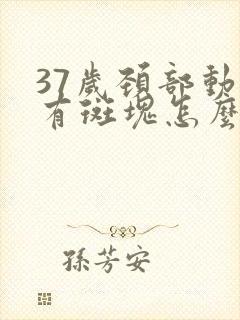 37歲頚部動
有斑塊怎麼
孫芳安